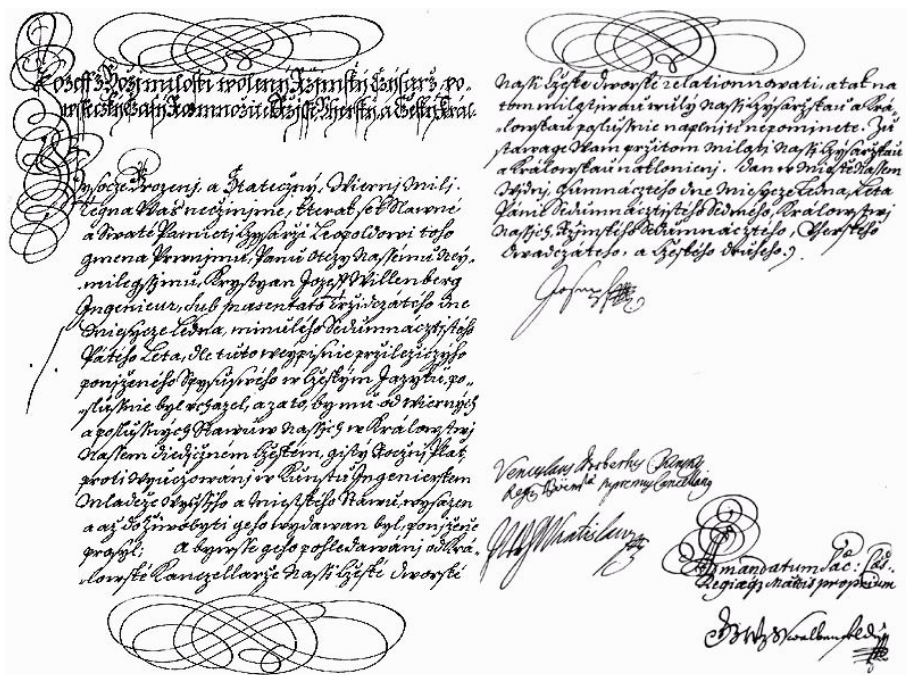 Jozeff z Boží milosti wolený Ržimský Cysarž, po-
wssecky Czasy Rozmnožitel Ržisse, Uherský, a Český Král.
Wysoce Urozený, a Statečný, Wěrnj Milj.
Tegna Wás nečinjme, kterak gest Slawné
a Swaté Paměti, Cysarži Leopoldowi toho
gmena Prwnjmu, Panu Otcy Nassemu Ney-
milegssjmu, Krystyan Jozeff Willenberg
Ingenieur, sub præsentato Tržidczátého dne
Měsycze Ledna, minulého Sedumnácztistého
Pátého Léta, dle tuto w
ponjženého Spysu swého w Czeským Jazyku, po-
slussně byl wcházel, a za to, by mu od Wěrných
a poslussných Stawůw Nassych w Králowstwj
Nassem Dědiczném Czeském, gistý Rocznj Plat
proti wyuczowánj w Kunstu Ingenierskem
Mládeže Wyssího a Městského Stawu, wysazen
a až do žiwobytí geho wydáwan byl, ponjženě
prosyl; a bywsse geho pohledáwánj od Krá-
lowské Kanczelláře Nassj Czeské Dworské
Nassj Czeské Dworské relationnowati, a tak na
tom milostiwau wůly Nassj Cysaržskau a Krá-
lowskau poslussně naplniti nepominete. Zů-
stáwage Wám přitom milostj Nassj Cysaržskau
a Králowskau nakloněni. Dan w Městě Nassem
Wjdni, dne Měsycze Ledna, Léta
Páně Sedumnácztistého Sedmého, Králowstwj
Nassich, Ržimského Uherského
Dwadczátého, a Czeského druhého.
Joseph
Venceslaus Norbertus Kinsky
Regis Boemiæ supremus Cancellarius
Wratislaw
Ad mandatum Sac: Cæs:
Regiæq Mattis proprium